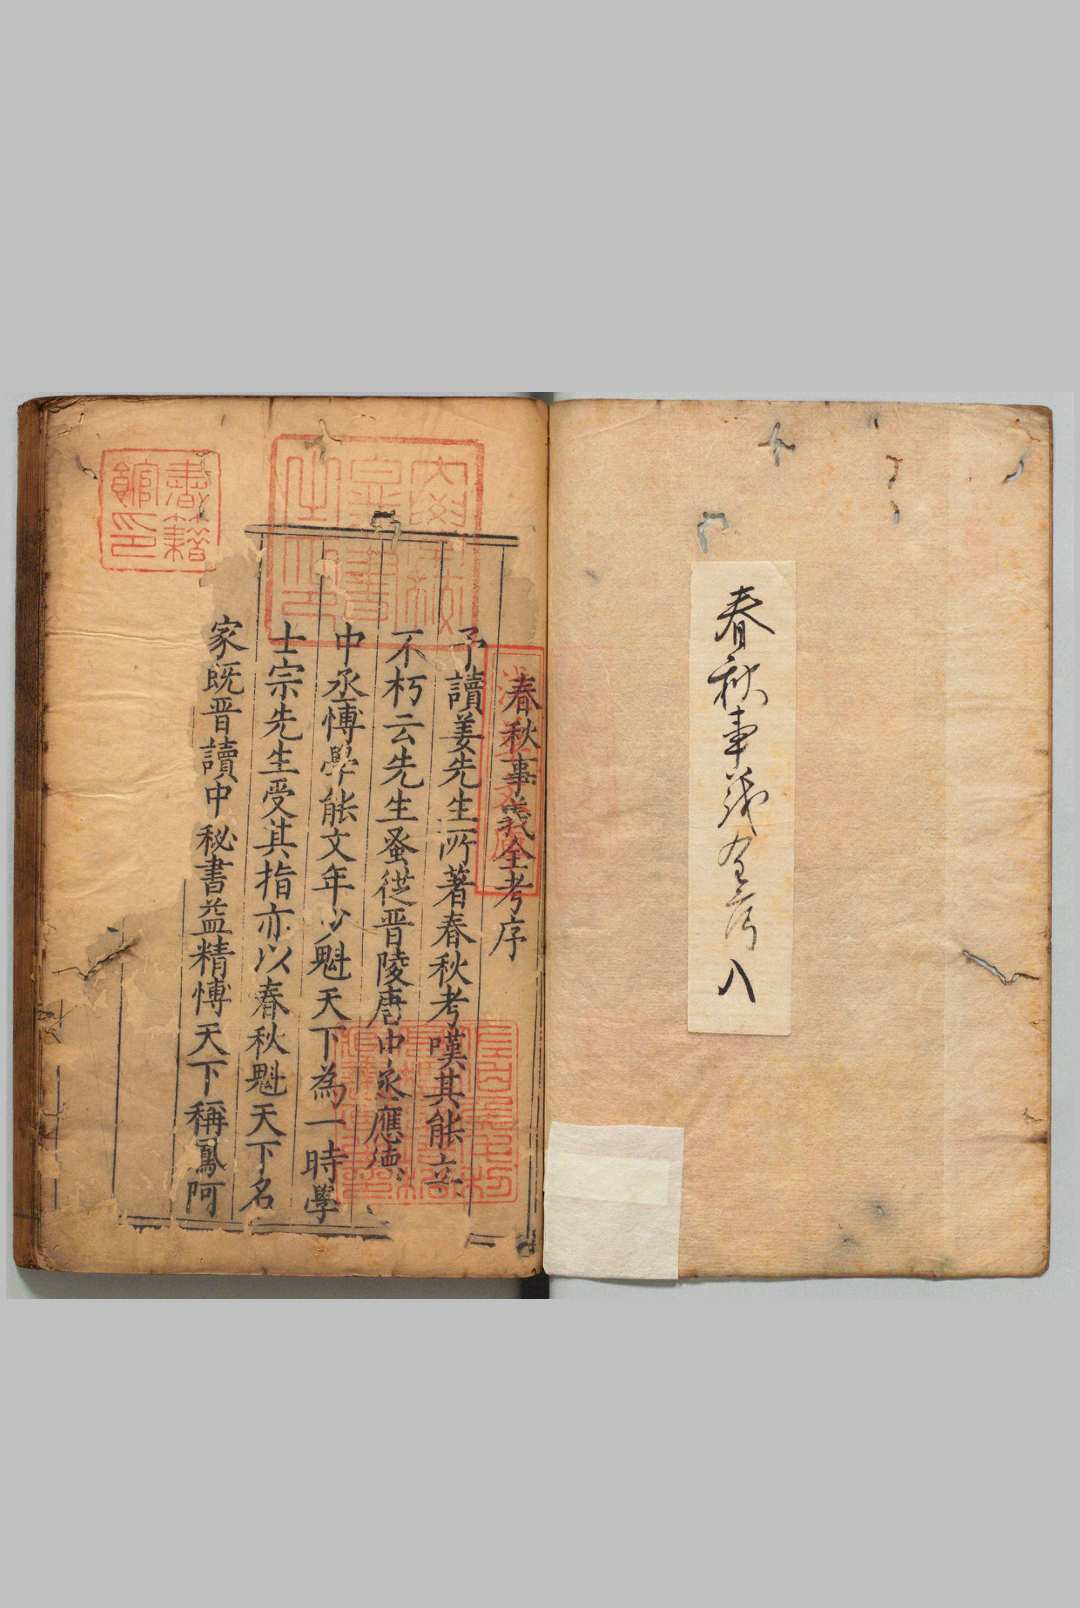 春秋事義全考 八
春秋事義全考序
予讀姜先生所著春秋考嘆其能立
不朽云先生蚤從晋陵唐中丞應德
中丞博學能文年少魁天下為一時學
士宗先生受其指亦以春秋魁天下名
家既晋讀中秘書益精博天下稱鳳阿
書籍館印